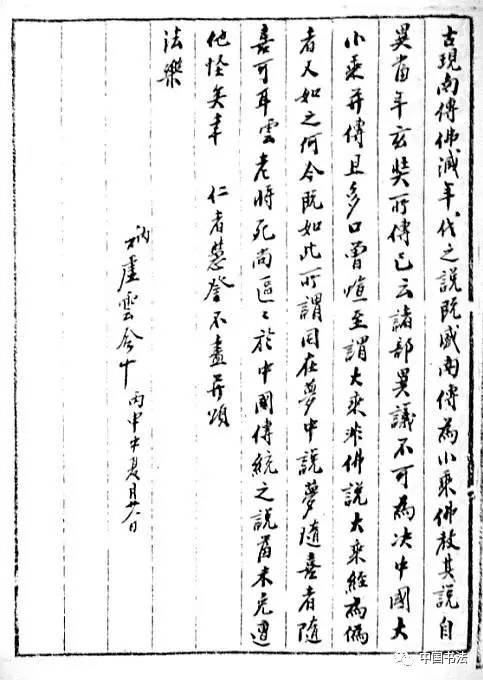 古現南傳佛滅年代之說既威南傳為小乘佛教其說自
異當年玄奘所傳已云諸部異議不可為決中國大
小乘並傳且多口曾喧至謂大乘非佛說大乘經為偽
者又如之何今既如此所謂同在夢中說夢隨喜者隨
喜可耳雲老將死尚區區於中國傳統之說當未免遭
他怪矣幸 仁者慧詧不盡并頌
法樂
衲虛雲合十 丙申中夏月廿八日
中国书法